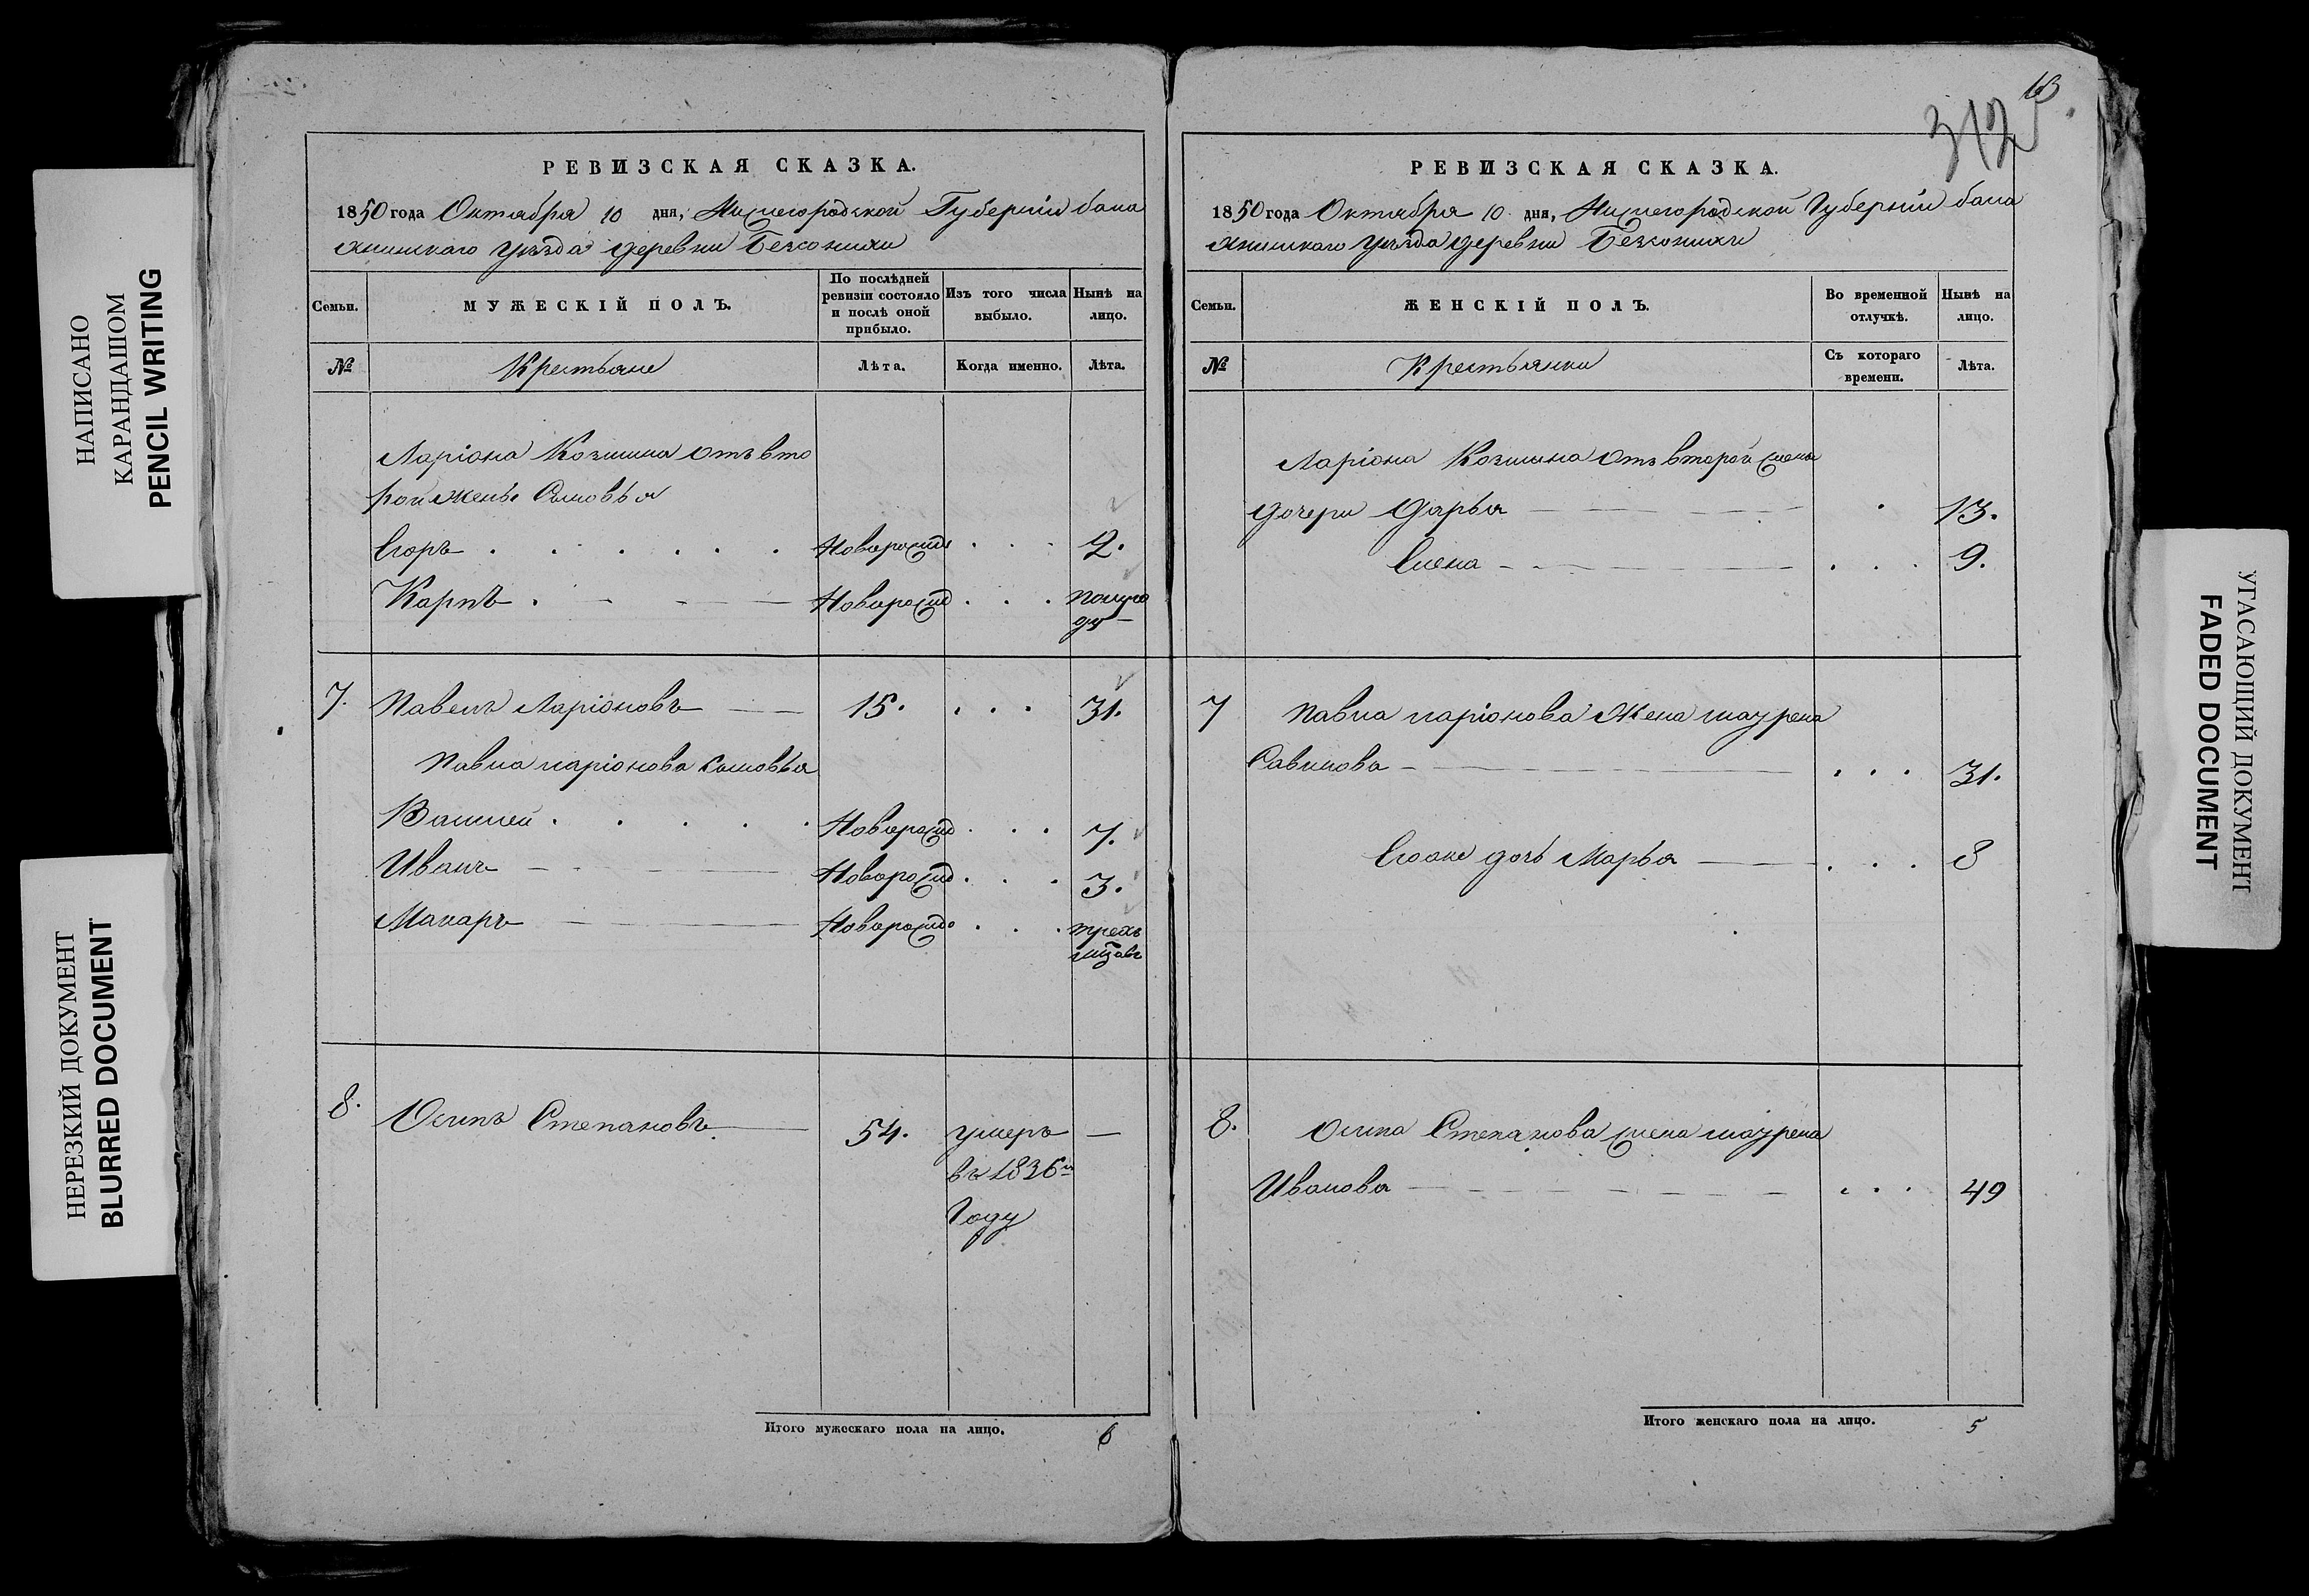 НАПИСАНО
КАРАНДАШОМ
PENCIL WRITING
НЕРЕЗКИЙ ДОКУМЕНТ
BLURRED DOCUMENT
РЕВИЗСКАЯ СКАЗКА.
1850 года Октября 10 дня, Нижегородской Губернїи бала
хнинскаго уѣзда деревни
Семьи.
МУЖЕСКІЙ ПОЛЪ.
По послѣдней ревизіи состояло и послѣ оной прибыло.
Изъ того числа выбыло.
Нынѣ на лицо.
№
Крестьяне
Лѣта.
Когда именно.
Лѣта.
Ларіона Козмина отъ вто
рой жены Сыновья
Егоръ . . . . . . Новорожд . . . 2.
Карпъ . Новорожд . . . полуго
ду
7. Павелъ Ларіоновъ 15. . . . 31.
Павла Ларіонова Сыновья
Василей . . . . . Новорожд . . . 7.
Иванъ Новорожд . . . 3.
Макаръ Новорожд . . . трехъ
8. Осипъ Степановъ 54. умеръ —
въ 1836м
Году
Итого мужескаго пола на лицо. 6
13
312
РЕВИЗСКАЯ СКАЗКА.
1850 года Октября 10 дня, Нижегородской Губернїи бала
хнинскаго уѣзда деревни
Семьи.
ЖЕНСКІЙ ПОЛЪ.
Во временной отлучкѣ.
Нынѣ на лицо.
№
Крестьянки
Съ котораго времени.
Лѣта.
Ларіона Козмина отъ второй жены
дочери Дарья . 13.
Елена . . . 9.
7 Павла Ларіонова Жена
Савинова . . . 31.
Егоже дочь Марья . . . 8
8. Осипа Степанова жена
Иванова . . . 49
Итого женскаго пола на лицо. 5
УГАСАЮЩИЙ ДОКУМЕНТ
FADED DOCUMENT